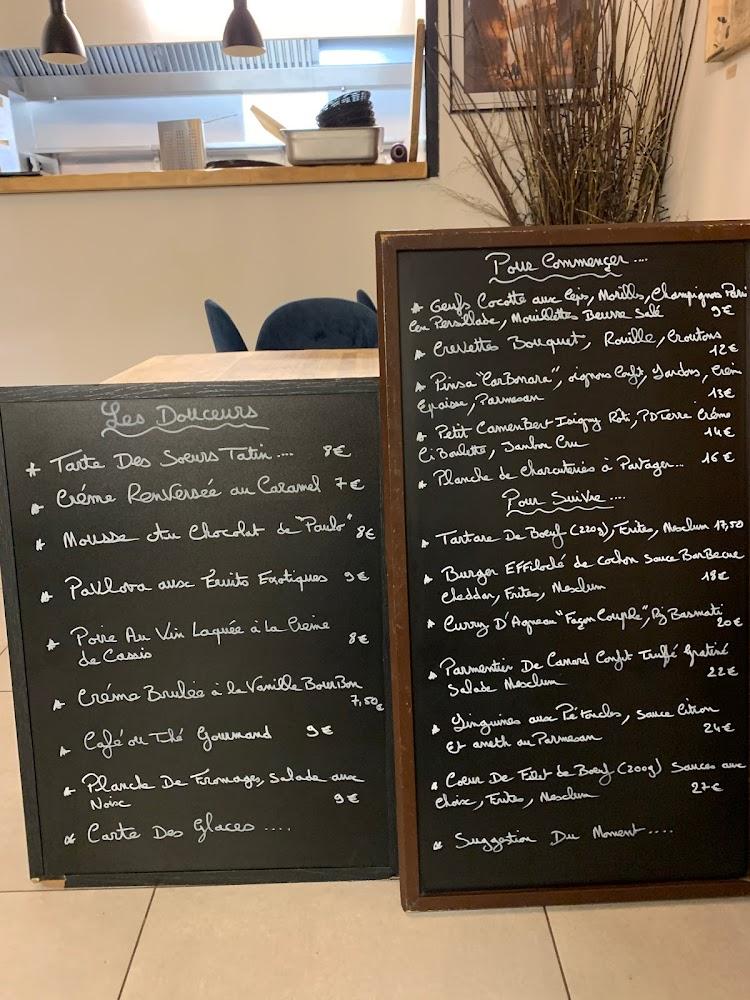 Les Douceurs
* Tarte Des Soeurs Tatin .... 8€
* Créme Renversée au Caramel 7€
* Mousse Au Chocolat de "Paulo" 8€
* Pavlova aux Fruits Exotiques 9€
* Poire Au Vin Laquée à la Creme
de Cassis 8€
* Créme Brulée à la Vanille Bourbon
7,50€
* Café ou Thé Gourmand 9€
* Planche De Fromages, Salade aux
Noix 9€
* Carte Des Glaces ....
Pour Commencer ....
* Oeufs Cocotte aux Ceps, Morilles, Champignons Paris
en Persillade, Mouillettes Beurre Salé 9€
* Crevettes Bouquet, Rouille, Croutons
12€
* Pinsa "Carbonara", oignons Confit, Lardons, Crème
Epaisse, Parmesan 13€
* Petit Camenbert Isigny Roti, PDTerre Crème
Ciboulette, Jambon Cru 14€
* Planche de Charcuteries à Partager... 16€
Pour Suivre ....
* Tartare De Boeuf (220g), Frites, Mesclum 17,50
* Burger Effiloché de Cochon Sauce BarBecue
Cheddar, Frites, Mesclum 18€
* Curry D'Agneau "Façon Couple", Rz Basmati
20€
* Parmentier De Canard Confit Truffé Gratiné
Salade Mesclum 22€
* Linguines aux Pétoncles, Sauce Citron
Et aneth au Parmesan 24€
* Coeur De Filet de Boeuf (200g) Sauces aux
Choix, Frites, Mesclum 27€
* Suggestion Du Moment ....